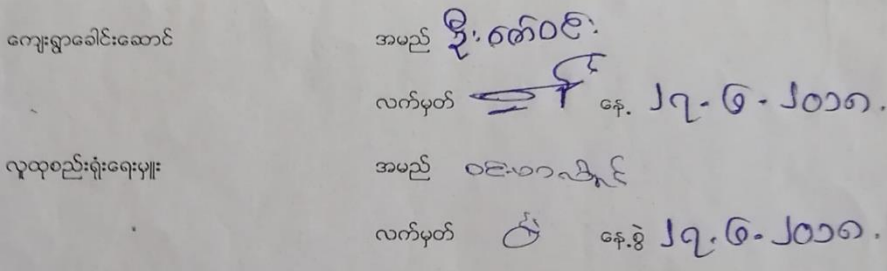 ကျေးရွာခေါင်းဆောင် အမည် ဦးဇော်ဝင်း
လက်မှတ် နေ့ ၂၇.၆.၂၀၁၈.
လူထုစည်းရုံးရေးမှူး အမည်
လက်မှတ် နေ့စွဲ ၂၇.၆.၂၀၁၈.